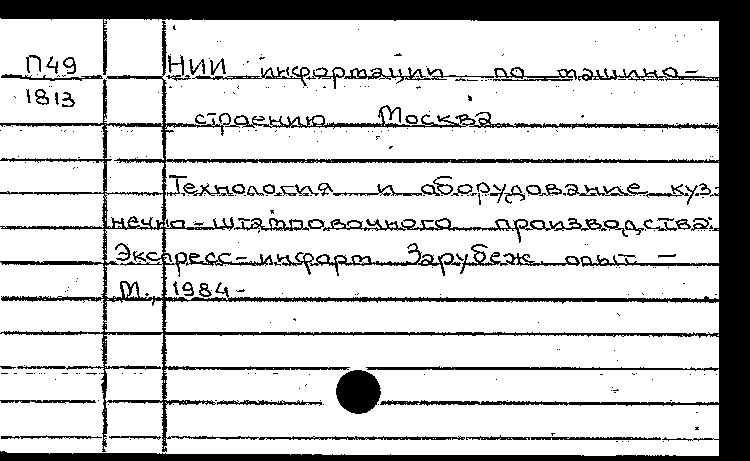 П49
1813
НИИ информации по машино-
строению. Москва
Технология и оборудование куз-
нечно-штамповочного производства:
Экспресс-информ. Заруbеж. опыт —
М., 1984-